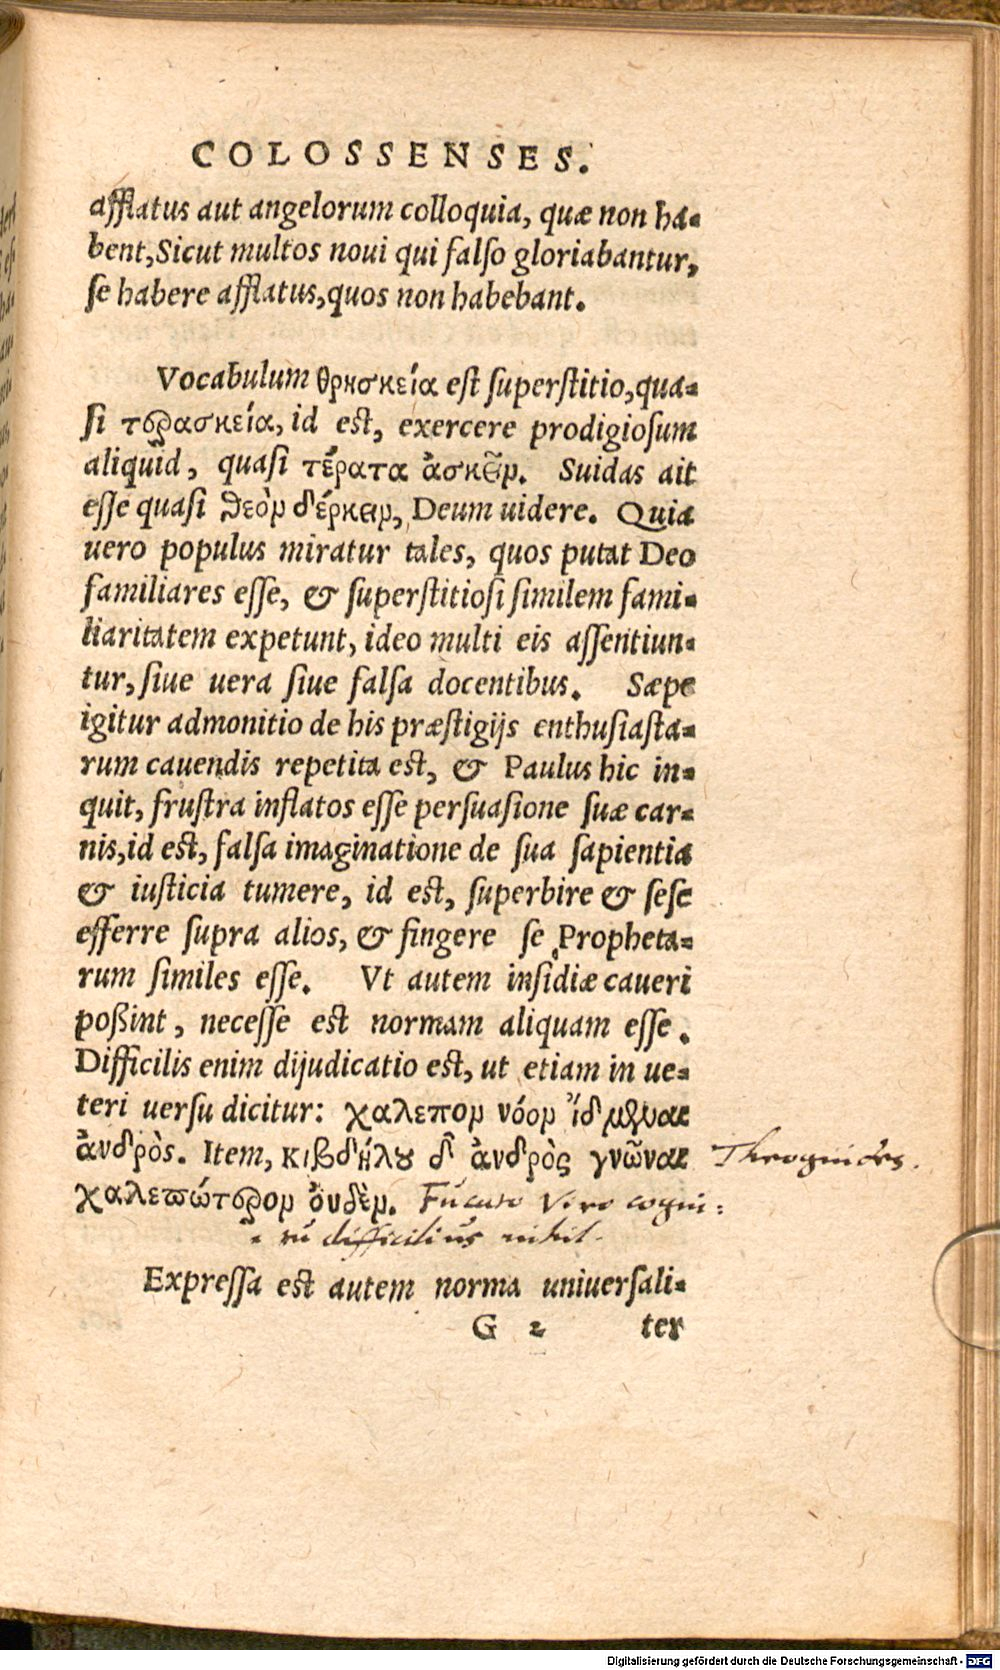 COLOSSENSES.
afflatus aut angelorum colloquia, quæ non ha-
bent, Sicut multos noui qui falſo gloriabantur,
ſe habere afflatus, quos non habebant.
Vocabulum θρησκεία eſt ſuperſtitio, qua-
ſi τερασκεία, id eſt, exercere prodigioſum
aliquid, quaſi τέρατα ἀσκεῖν. Suidas ait
eſſe quaſi θεὸν δέρκειν, Deum uidere. Quia
uero populus miratur tales, quos putat Deo
familiares eſſe, & ſuperſtitioſi ſimilem fami-
liaritatem expetunt, ideo multi eis aſſentiun-
tur, ſiue uera ſiue falſa docentibus. Sæpe
igitur admonitio de his præſtigijs enthuſiaſta-
rum cauendis repetita eſt, & Paulus hic in-
quit, fruſtra inflatos eſſe perſuaſione ſuæ car-
nis, id eſt, falſa imaginatione de ſua ſapientia
& iuſticia tumere, id eſt, ſuperbire & ſeſe
efferre ſupra alios, & fingere ſe Propheta-
rum ſimiles eſſe. Vt autem inſidiæ caueri
poßint, neceſſe eſt normam aliquam eſſe.
Difficilis enim dijudicatio eſt, ut etiam in ue-
teri uerſu dicitur: χαλεπὸν νόον ἴδμεναι
ἀνδρὸς. Item, κιβδήλου δ' ἀνδρὸς γνῶναι Theognides.
χαλεπώτερον ὀυδὲν. Fucato Viro cogni:
tu difficilius nihil.
Expreſſa eſt autem norma uniuerſali-
G 2 ter
Digitalisierung gefördert durch die Deutsche Forschungsgemeinschaft - DFG